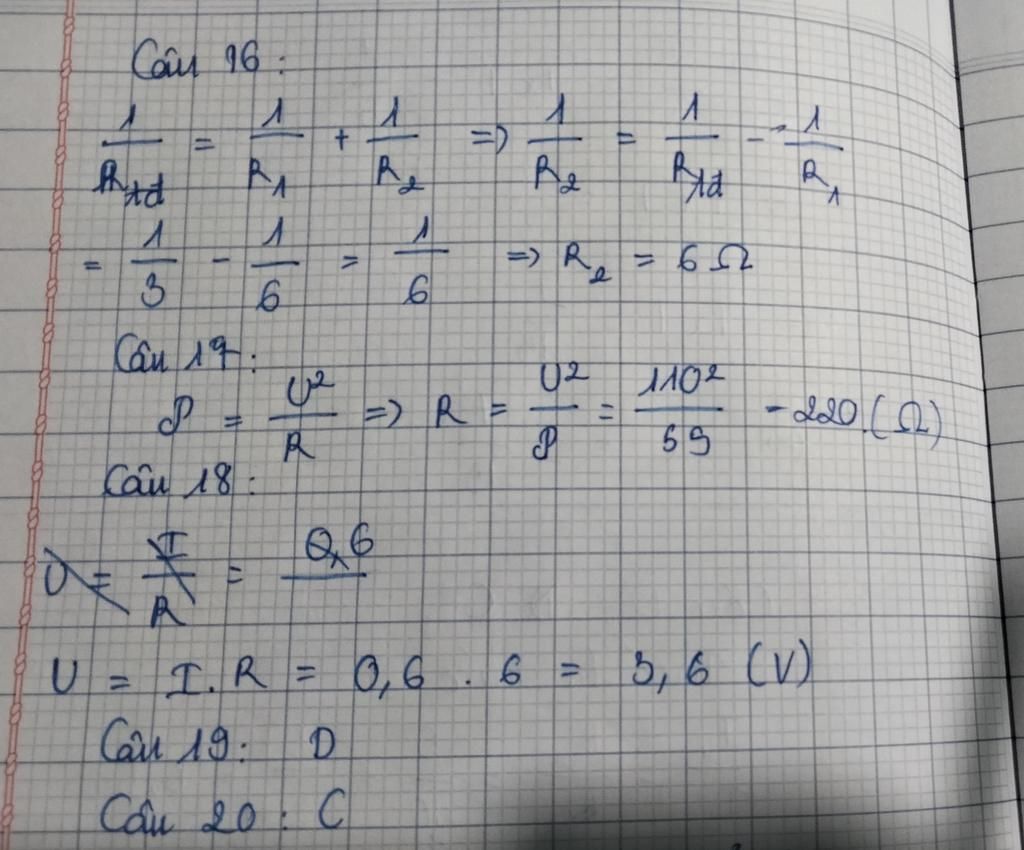 Câu 16:
1/R_tđ = 1/R_1 + 1/R_2 => 1/R_2 = 1/R_tđ - 1/R_1
= 1/3 - 1/6 = 1/6 => R_2 = 6 Ω
Câu 17:
P = U²/R => R = U²/P = 110²/55 = 220.(Ω)
Câu 18:
U = I/R = 0,6
U = I.R = 0,6 . 6 = 3,6 (V)
Câu 19: D
Câu 20: C